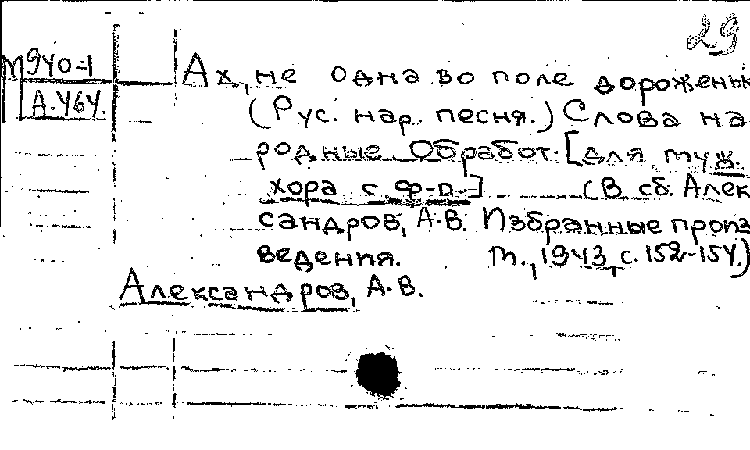 29
М940-1
А.464.
Ах, не одна во поле дорожень
(Рус. нар. песня.) Слова на-
родные Обработ. [для муж.
хора с ф-п.] (В сб. Алек
сандров, А.В. Избранные произ
ведения. М., 1943, с. 152-154.)
Александров, А.В.